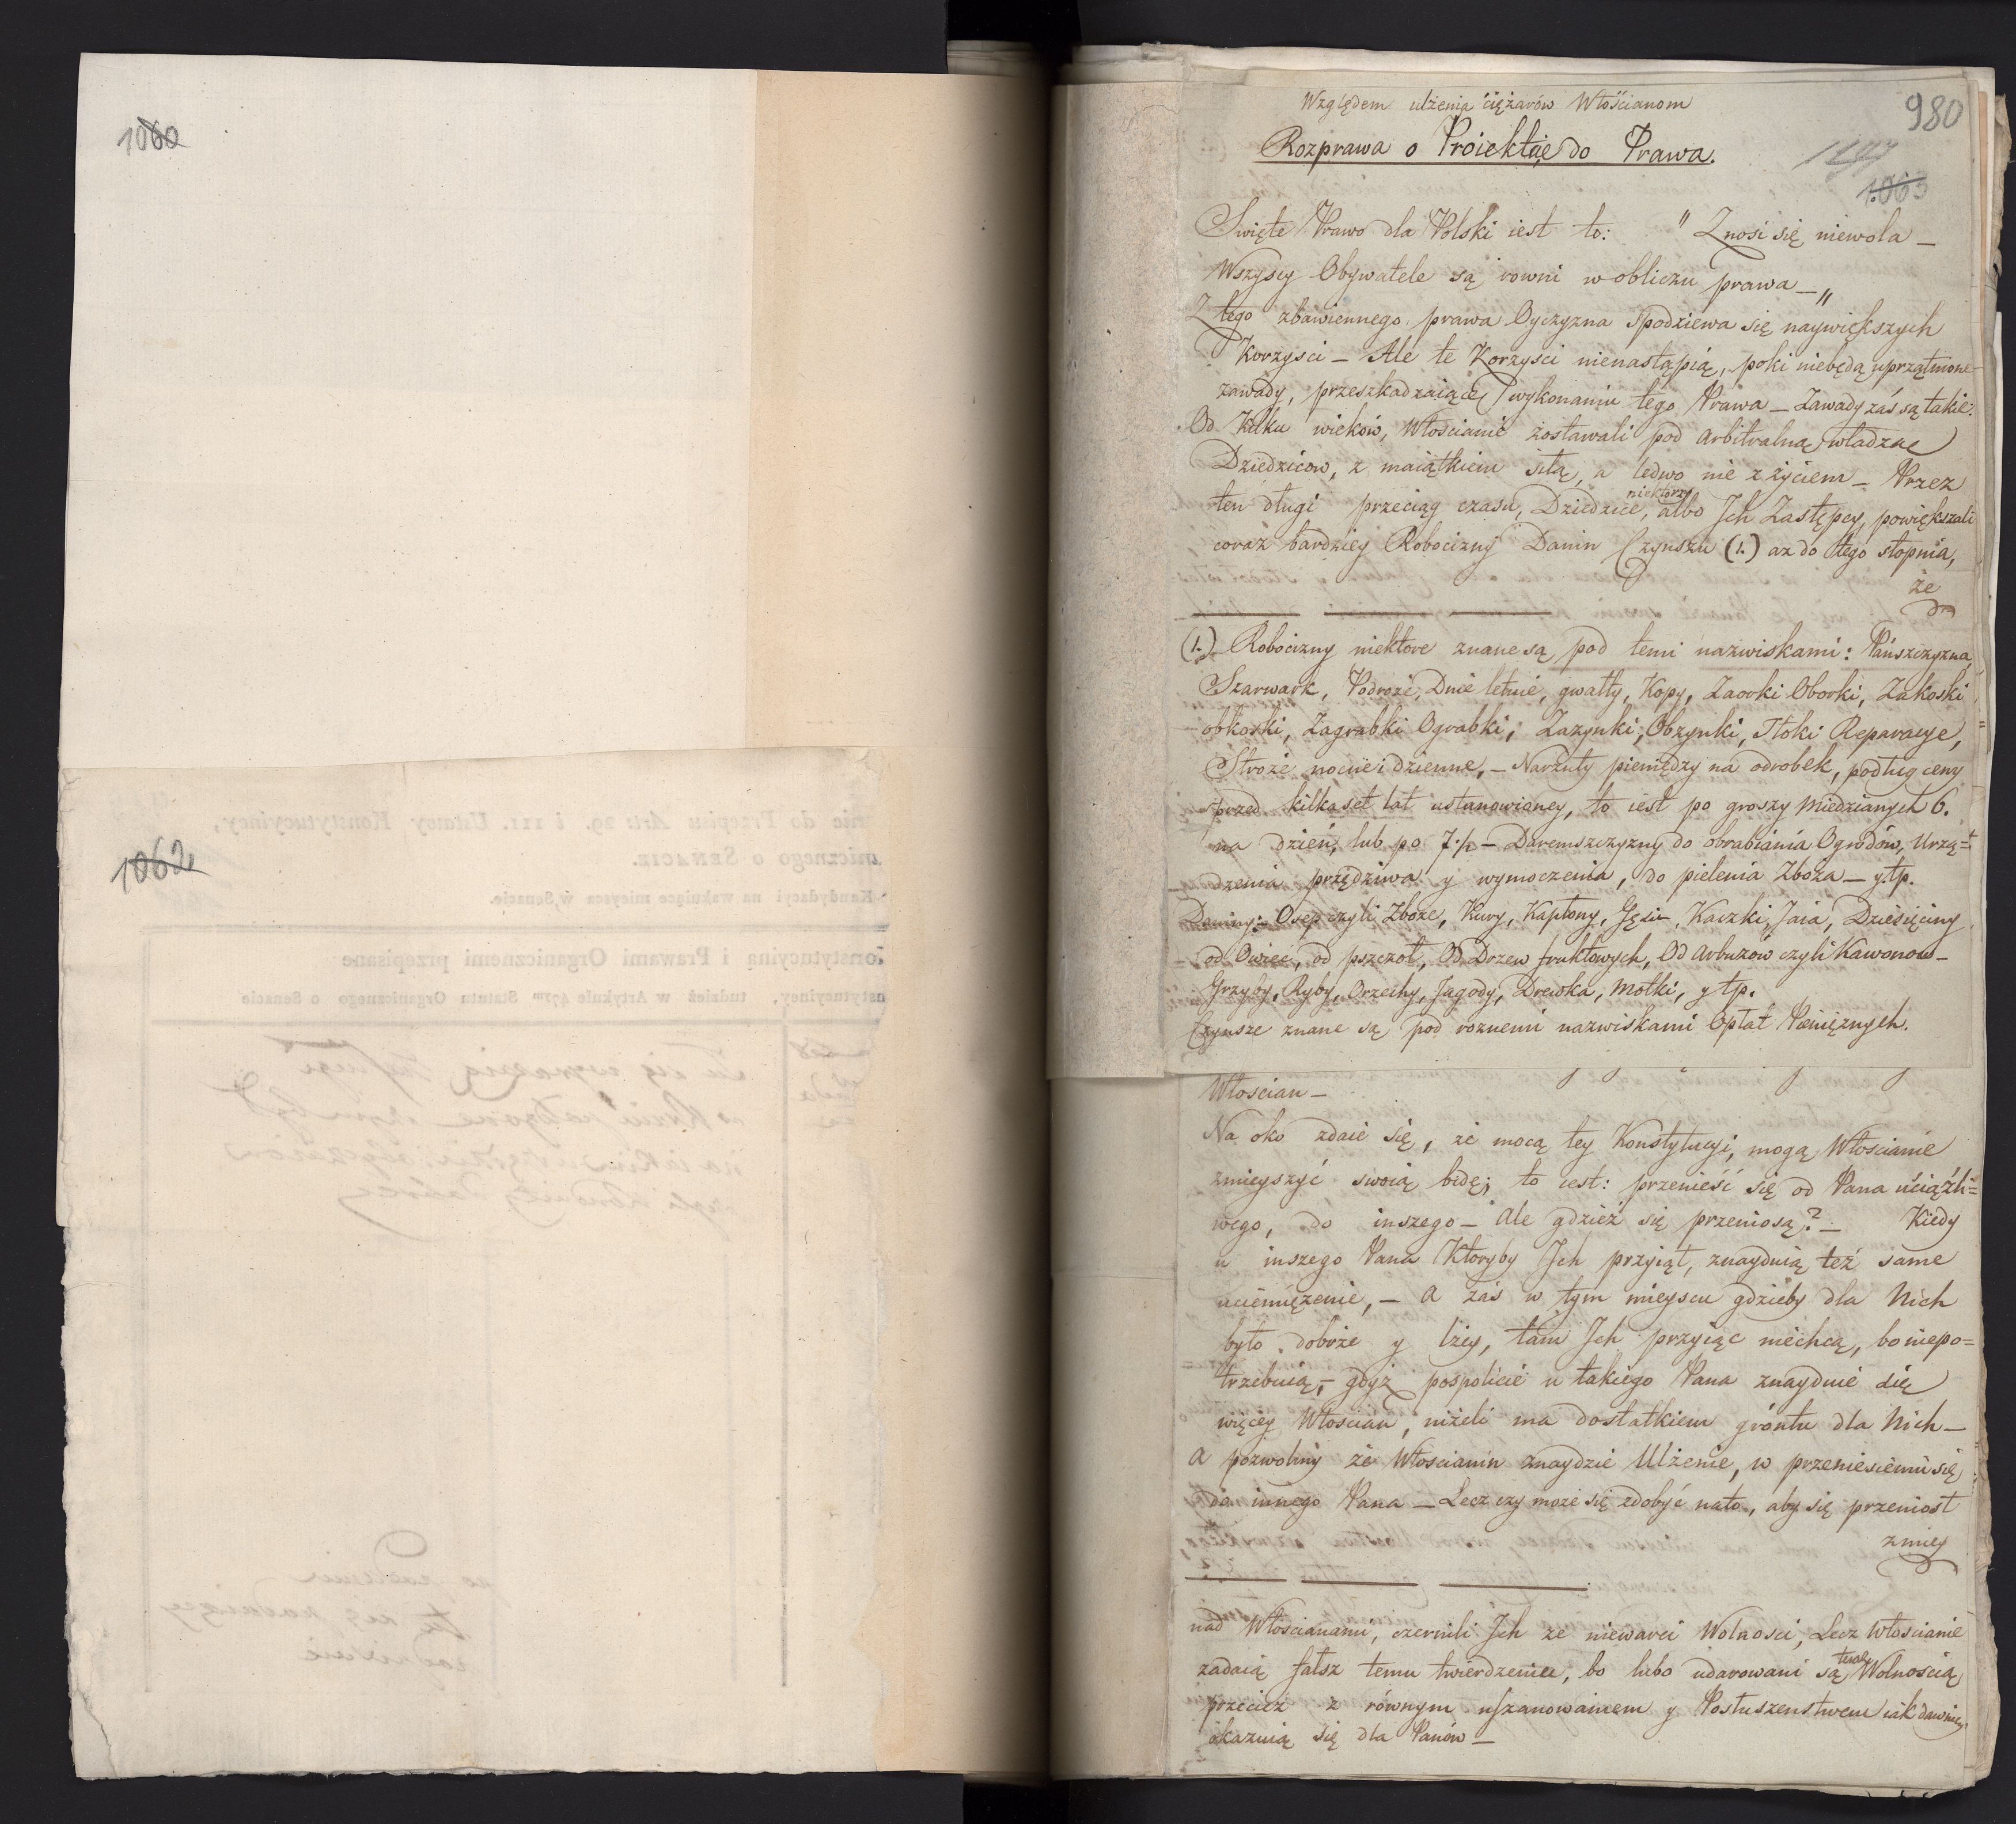 1060
1062
980
1063
Względem ulżenia ciężarów Włościanom
Rozprawa o Proiekcie do Prawa.
Swięte Prawo dla Polski iest to: " Znosi się niewola _
Wszyscy Obywatele są rowni w obliczu prawa _ "
Z tego zbawiennego prawa Oyczyzna spodziewa się naywiększych
Korzysci _ Ale te Korzysci nienastąpią, poki niebędą uprzątnione
zawady, przeszkadzaiące wykonaniu tego Prawa _ Zawady zaś są takie:
Od Kilku wieków, Włoscianie zostawali pod arbitralną władzą
Dziedziców, z maiątkiem siłą, a ledwo nie z życiem _ Przez
ten długi przeciąg czasu, Dziedzice, niektorzy albo Ich Zastępcy, powiększali
coraz bardziey Robocizny Danin Czynszu (1.) az do tego stopnia,
że
(1.) Robocizny niektore znane są pod temi nazwiskami: Pańszczyzna,
Szarwark, Podroże, Dnie letnie, gwałty, Kopy, Zaorki Oborki, Zakoski
obkoski, Zagrabki Ograbki, Zazynki, Obzynki, Tłoki Reparacye,
Stroże nocne i dzienne, _ Narzuty pieniędzy na odrobek, podług ceny
przed kilkaset lat ustanowioney, to iest po groszy miedzianych 6.
na dzień, lub po 7½ _ Daremszczyzny do obrabiania Ogrodów, Urzą=
dzenia przędziwa y wymoczenia, do pielenia Zboża _ y.tp.
Daniny: Osep czyli Zboże, Kury, Kapłony, Gęsi, Kaczki, Jaia, Dziesięciny
od Owiec, od pszczoł, Od Drzew fruktowych, Od Arbuzów czyli Kawonow _
Grzyby, Ryby, Orzechy, Jagody, Drewka, Motki, y tp.
Czynsze znane są pod roznemi nazwiskami Opłat Pieniężnych.
Włoscian _
Na oko zdaie się, że mocą tey Konstytucyi, mogą Włoscianie
zmieyszyć swoią bidę; to iest: przenieść się od Pana uciążli=
wego, do inszego _ Ale gdzież się przeniosą? _ Kiedy
u inszego Pana Ktoryby Ich przyiął, znayduią też same
uciemiężenie, _ A zaś w tym mieyscu gdzieby dla Nich
było dobrze y lżey, tam Ich przyiąc niechcą, bo niepo=
trzebuią, _ gdyż pospolicie u takiego Pana znayduie się
więcey Włoscian, niżeli ma dostatkiem gróntu dla Nich _
A pozwolmy że Włoscianin znaydzie Ulżenie, w przeniesieniu się
do innego Pana _ Lecz czy może się zdobyć nato, aby się przeniosł
zmiey
nad Włościanami, czernili Ich ze niewarci Wolnosci, Lecz Włoscianie
zadaią fałsz temu twierdzeniu, bo lubo udarowani są teraz Wolnoscią
przeciez z równym uszanowaniem y Posłuszenstwem iak dawniey
okazuią się dla Panów _